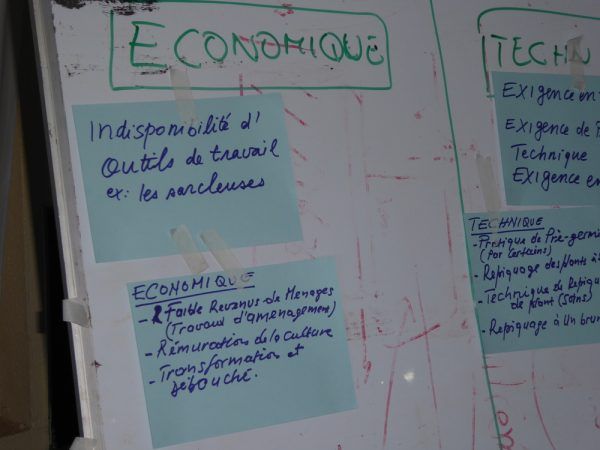 ECONOMIQUE
Indisponibilité d'
Outils de travail
ex: les sarcleuses
ECONOMIQUE
- Faible Revenus de Menages
(Travaux d'amenagement)
- Rémuration de la Culture
- Transformation et
Débouché.
TECHN
EXIGence en
EXIGence de
Technique
EXIGence en
TECHNIQUE
- Pratique de Pré-germi
(Par Certains)
- Repiquage des plants à
- Technique de Repiqu
de plant (soins)
- Repiquage à un brin